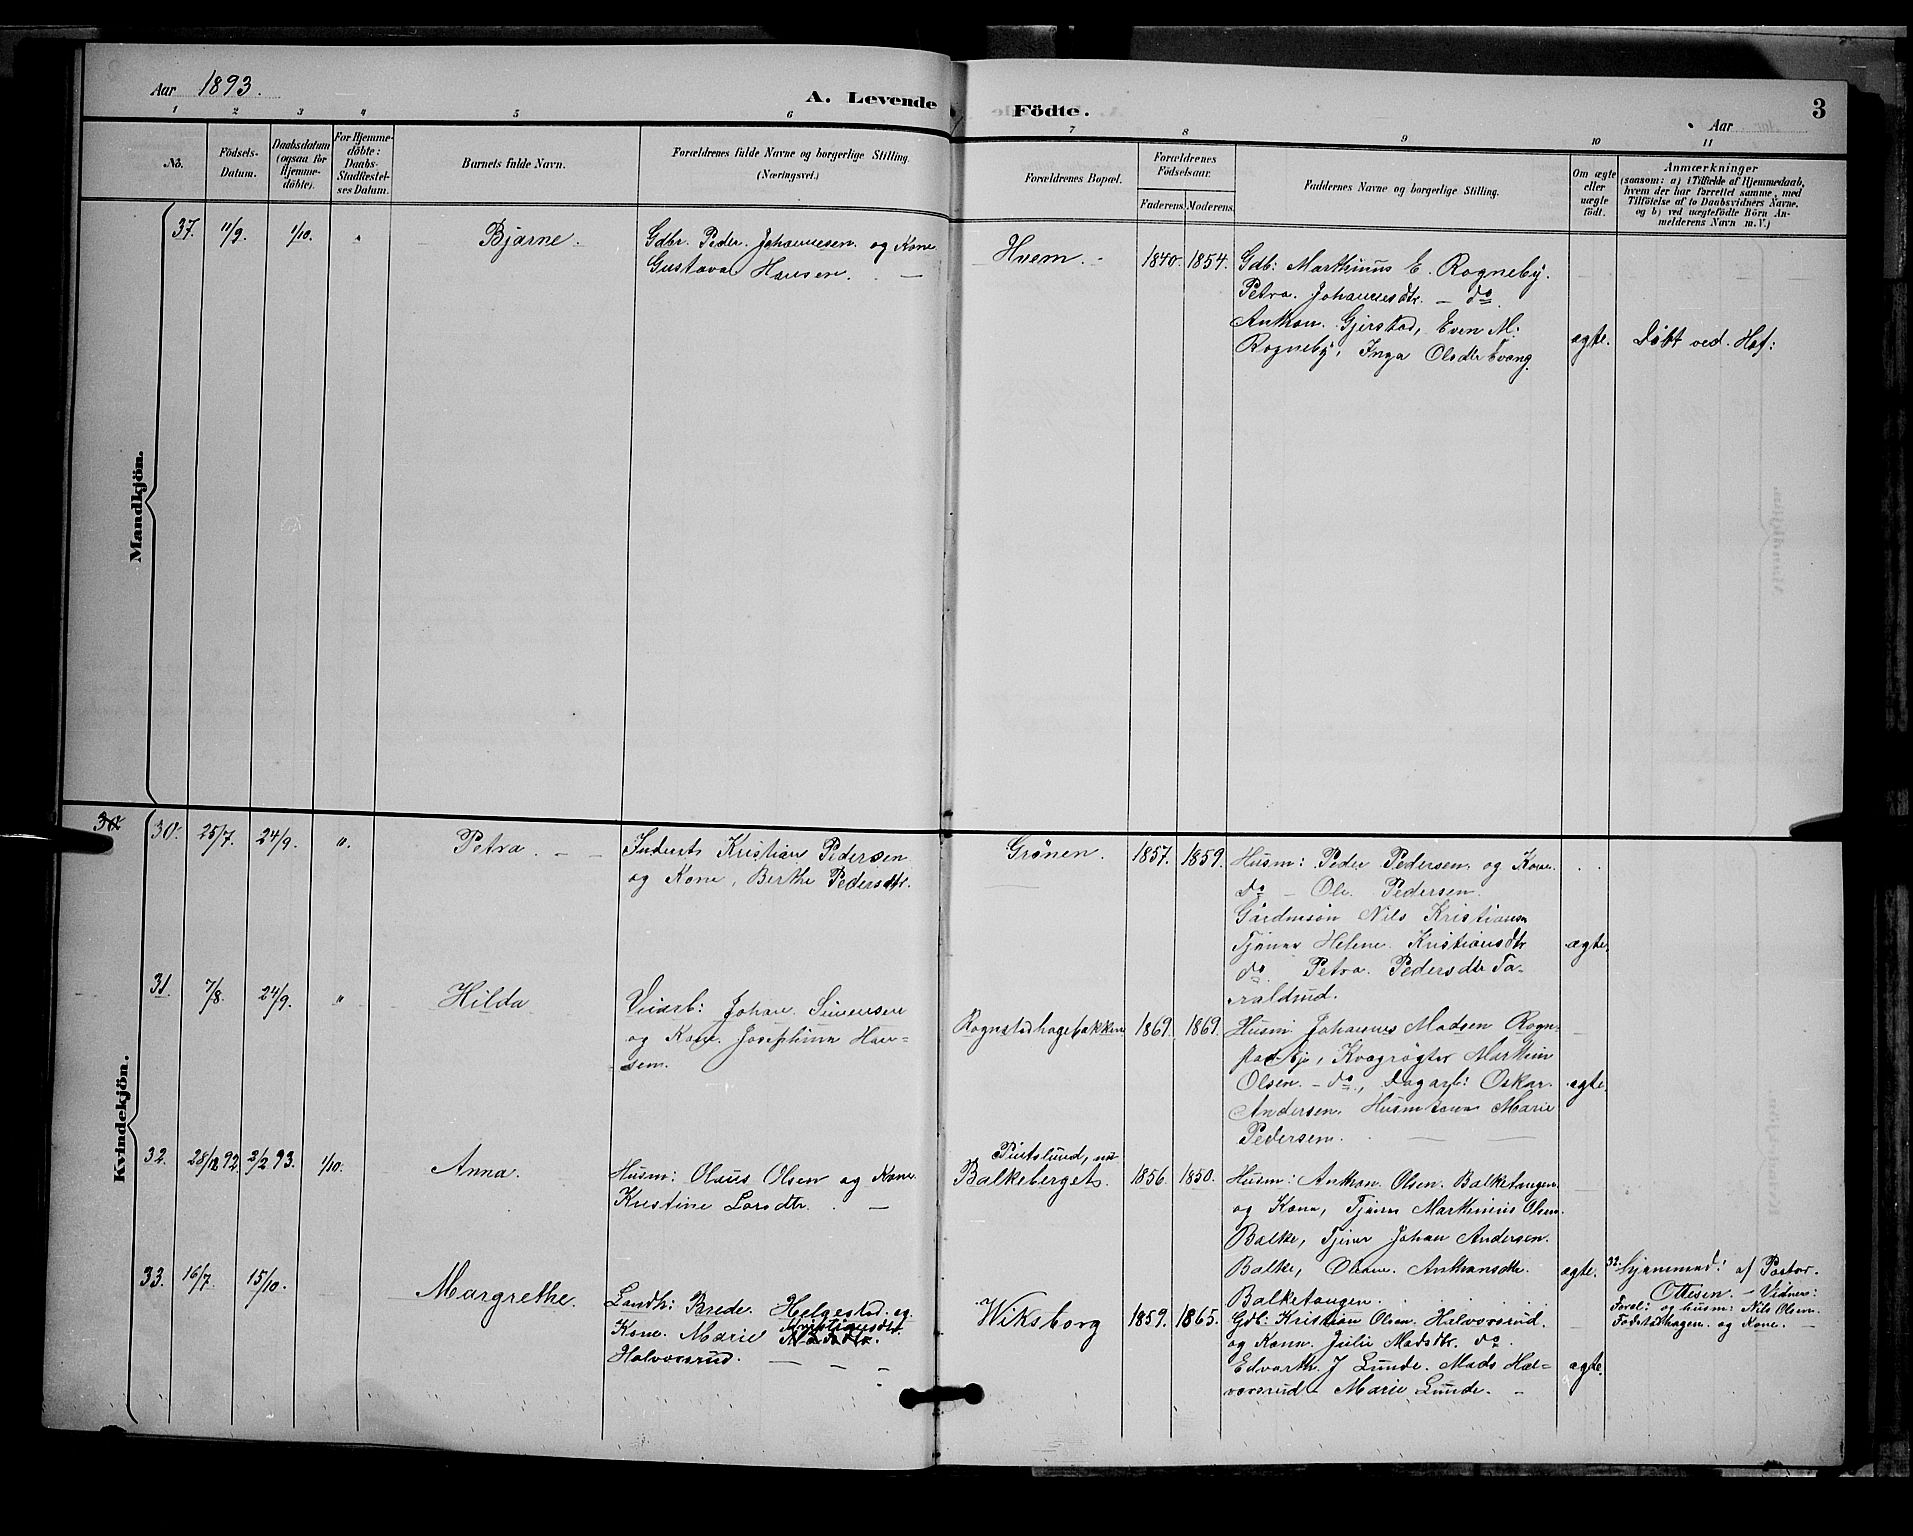 Aar 1893.
A. Levende Födte.
Aar
3
1 2 3 4 5 6 7 8 9 10 11
No.
Födsels-
Datum.
Daabsdatum
(ogsaa for
Hjemme-
döbte).
For Hjemme-
döbte:
Daabs-
Stadfæstel-
ses Datum.
Barnets fulde Navn.
Forældrenes fulde Navne og borgerlige Stilling.
(Næringsvei.)
Forældrenes Bopæl.
Forældrenes
Födselsaar.
Faderens. Moderens.
Faddernes Navne og borgerlige Stilling.
Om ægte
eller
uægte
födt.
Anmærkninger
(saasom: a) i Tilfælde af Hjemmedaab,
hvem der har forrettet samme, med
Tilföielse af to Daabsvidners Navne.
og b) ved uægtefödte Börn An-
melderens Navn m. V.)
Mandkjön.
37. 11/9. 1/10. " Bjarne.
Gdbr. Peder Johannesen og Kone
Gustava Hansen. —
Hvem. 1840. 1854.
Gdb: Marthinus E. Rogneby.
Petra Johannesdtr. — do
Anthon Gjerstad, Even M.
Rogneby, Inga Olsdtr Evang.
ægte. Döbt ved Hof:
Kvindekjön.
30. 25/7. 24/9. ". Petra.
Inderst Kristian Pedersen
og Kone, Berthe Pedersdtr.
Grönen. 1857. 1859.
Husm: Peder Pedersen og Kone.
do — Ole Pedersen.
Gårdmsön Nils Kristiansen
Tjener Helene Kristiansdtr
do Petra Pedersdtr Ta-
raldrud.
ægte.
31. 7/8. 24/9. " Hilda
Veiarb: Johan Simensen
og Kone Josephine Han-
sen.
Rognstadhagebakken 1869. 1869.
Husm Johannes Madsen Rogn-
stadeje, Kvægrögter Marthin
Olsen — do, Dagarb: Oskar
Andersen. Husmkone Marie
Pedersen.
ægte.
32. 28/12 92. 2/2 93. 1/10. Anna.
Husm: Olaus Olsen og Kone
Kristine Larsdtr. —
Balkeberget. 1856. 1850.
Husm: Anthon Olsen Balketangen
og Kone, Tjener Marthinius Olsen
Balke, Tjener Johan Andersen
Balke, Oleane Anthonsdtr.
Balketangen.
ægte.
32. hjemmed: af Pastor
Ottesen. — Vidner:
Foræl: og husm: Nils Olsen
Födstadhagen og Kone. —
33. 16/7. 15/10. Margrethe.
Landh: Brede Helgestad og
Kone Marie Kristiansdtr.
Halvorsrud. — — —
Wiksborg 1859. 1865.
Gdb: Kristian Olsen Halvorsrud.
og Kone Julie Madsdtr. do.
Edvarth J Lunde. Mads Hal-
vorsrud - Marie Lunde. —
ægte.